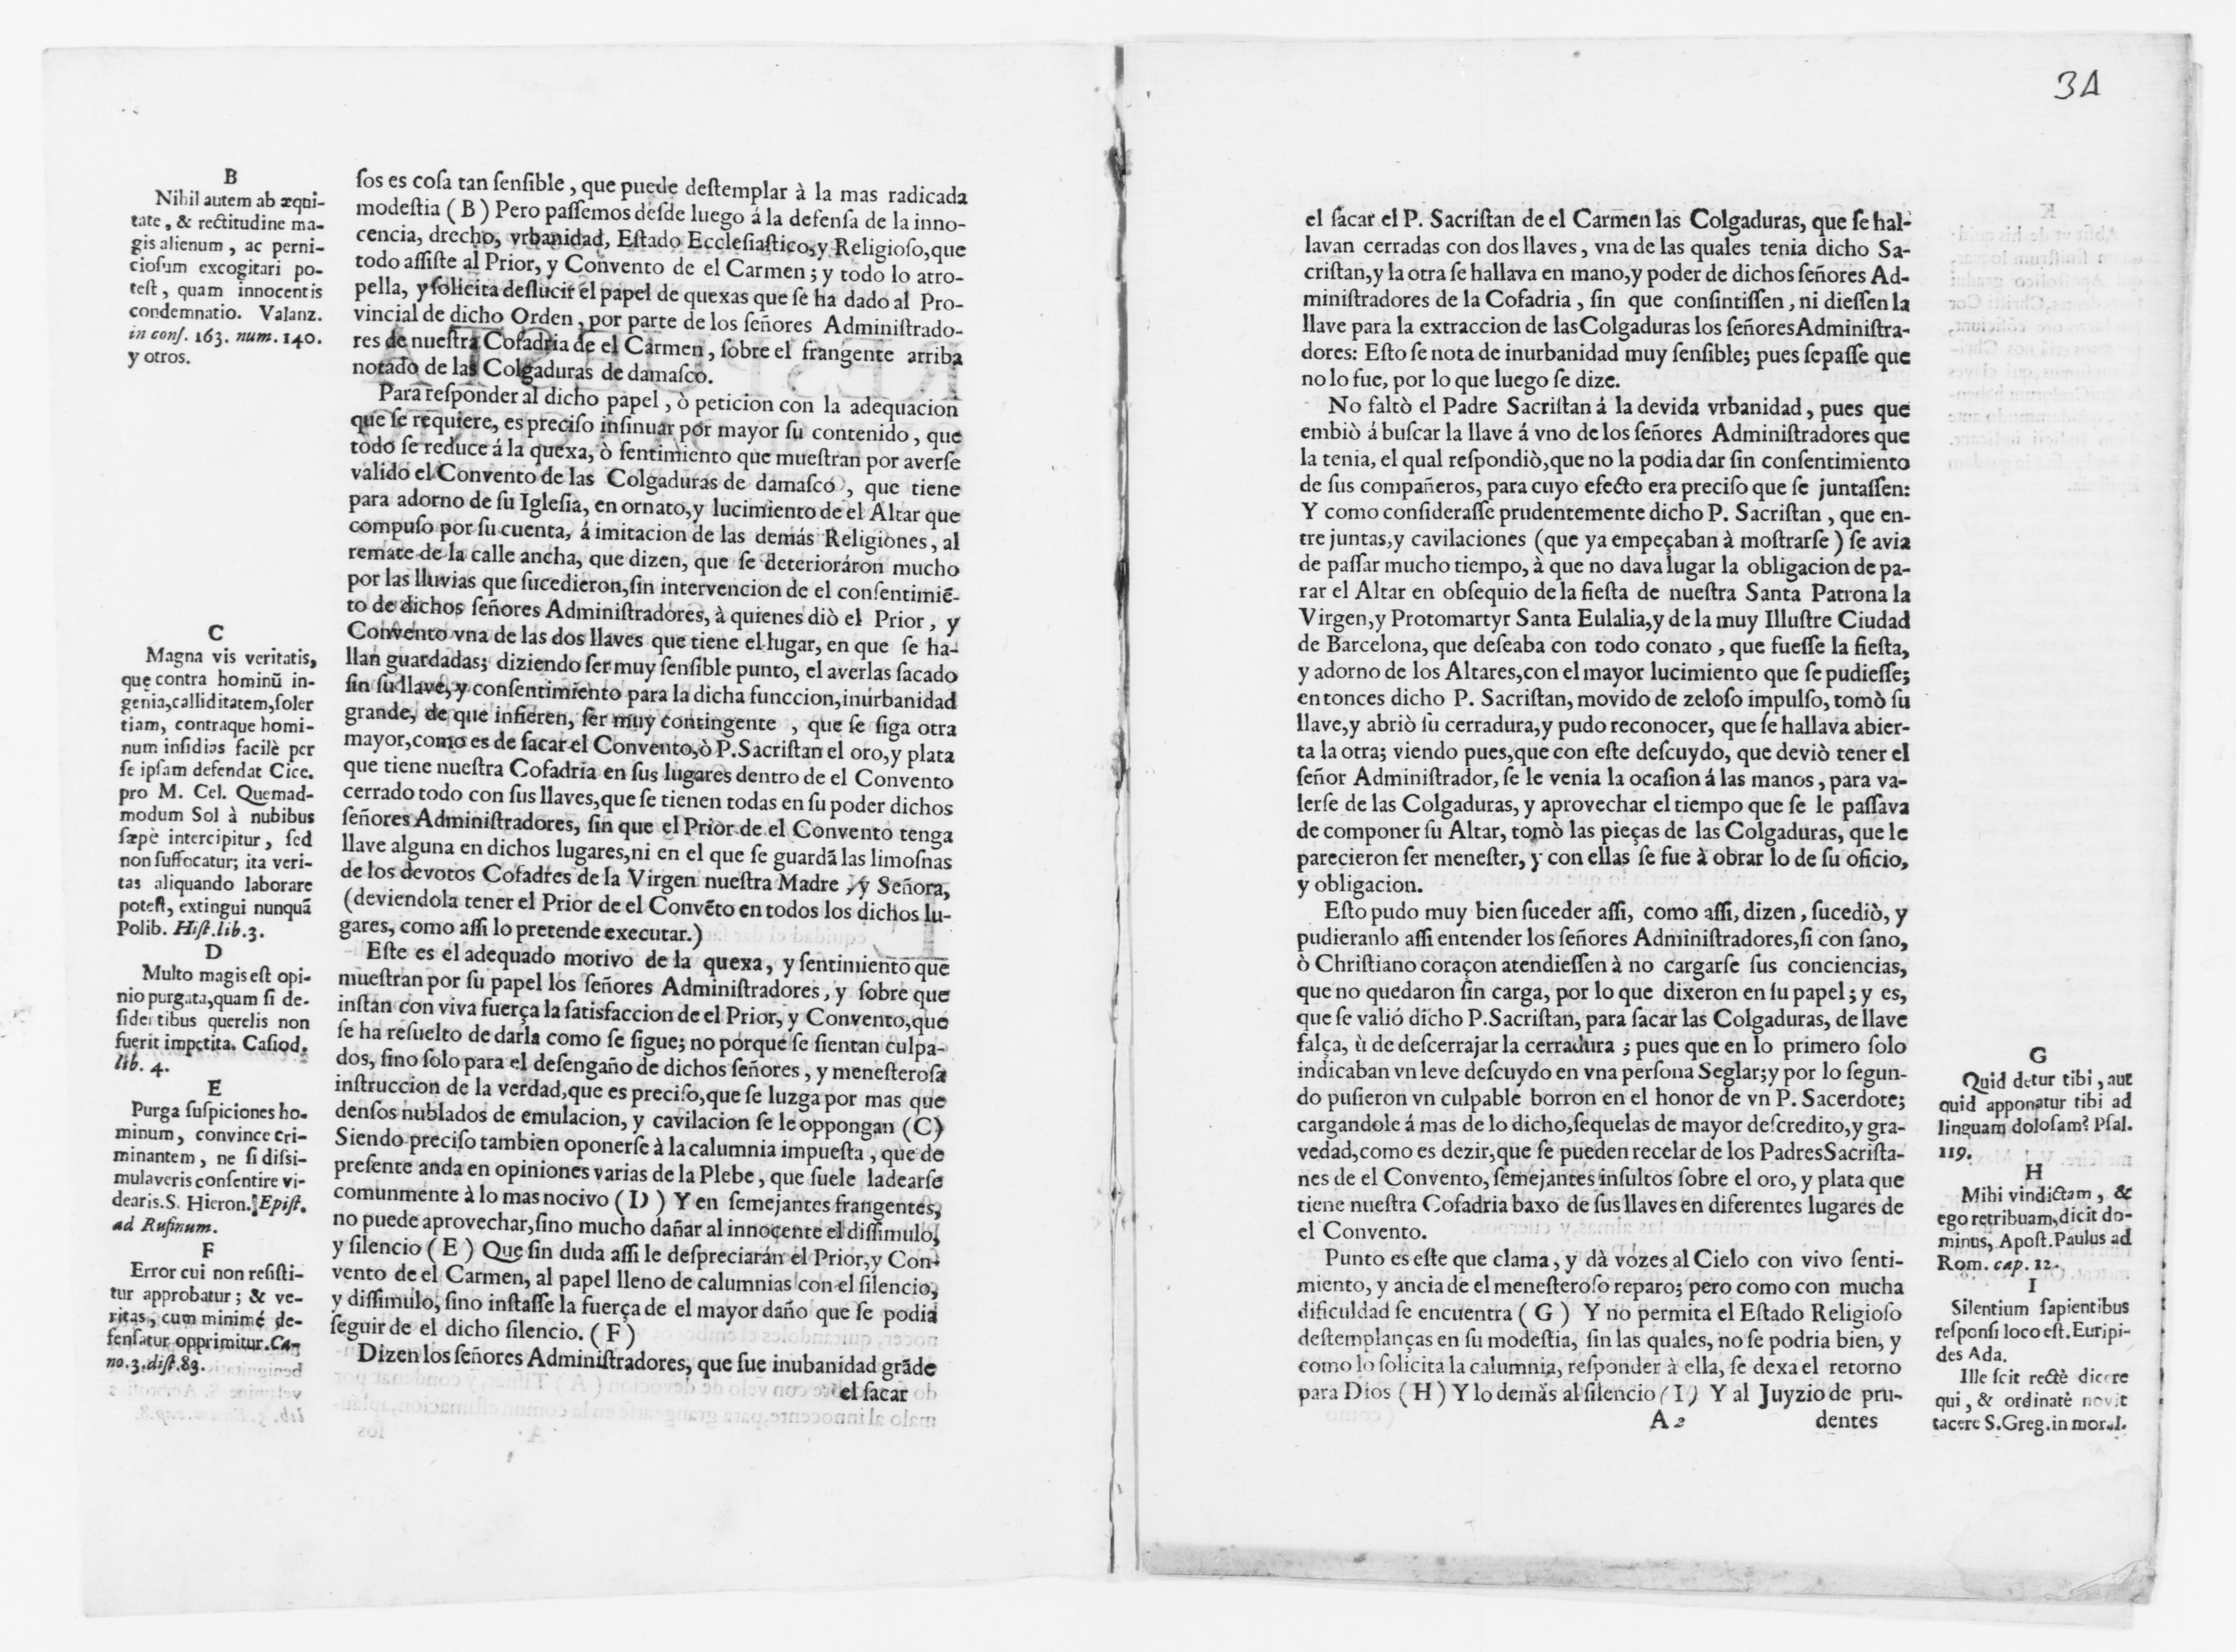 B
Nihil autem ab æqui-
tate, & rectitudine ma-
gis alienum, ac perni-
ciosum excogitari po-
test, quam innocentis
condemnatio. Valanz.
in conſ. 163. num. 140.
y otros.
C
Magna vis veritatis,
que contra hominũ in-
genia,calliditatem,ſoler
tiam, contraque homi-
num inſidias facilè per
ſe ipſam defendat Cice.
pro M. Cel. Quemad-
modum Sol à nubibus
ſæpè intercipitur, ſed
non ſuffocatur; ita veri-
tas aliquando laborare
poteſt, extingui nunquã
Polib. Hiſt.lib.3.
D
Multo magis eſt opi-
nio purgata,quam ſi de-
ſidertibus querelis non
fuerit impetita. Caſiod.
lib. 4.
E
Purga ſuſpiciones ho-
minum, convince cri-
minantem, ne ſi diſsi-
mulaveris conſentire vi-
dearis.S. Hieron. Epiſt.
ad Rufinum.
F
Error cui non reſiſti-
tur approbatur; & ve-
ritas, cum minimé de-
fenſatur opprimitur.Ca-
no.3.diſt.83.
ſos es coſa tan ſenſible, que puede deſtemplar à la mas radicada
modeſtia (B) Pero paſſemos deſde luego á la defenſa de la inno-
cencia, drecho, vrbanidad, Eſtado Eccleſiaſtico,y Religioſo,que
todo aſſiſte al Prior, y Convento de el Carmen; y todo lo atro-
pella, y ſolicita deſlucir el papel de quexas que ſe ha dado al Pro-
vincial de dicho Orden, por parte de los ſeñores Adminiſtrado-
res de nueſtra Cofadria de el Carmen, ſobre el frangente arriba
notado de las Colgaduras de damaſco.
Para reſponder al dicho papel, ò peticion con la adequacion
que ſe requiere, es preciſo inſinuar por mayor ſu contenido, que
todo ſe reduce á la quexa, ò ſentimiento que mueſtran por averſe
valido el Convento de las Colgaduras de damaſco, que tiene
para adorno de ſu Igleſia, en ornato,y lucimiento de el Altar que
compuſo por ſu cuenta, á imitacion de las demás Religiones, al
remate de la calle ancha, que dizen, que ſe deterioráron mucho
por las lluvias que ſucedieron,ſin intervencion de el conſentimiẽ-
to de dichos ſeñores Adminiſtradores, à quienes diò el Prior, y
Convento vna de las dos llaves que tiene el lugar, en que ſe ha-
llan guardadas; diziendo ſer muy ſenſible punto, el averlas ſacado
ſin ſu llave, y conſentimiento para la dicha funccion,inurbanidad
grande, de que infieren, ſer muy contingente, que ſe ſiga otra
mayor,como es de ſacar el Convento,ò P.Sacriſtan el oro,y plata
que tiene nueſtra Cofadria en ſus lugares dentro de el Convento
cerrado todo con ſus llaves,que ſe tienen todas en ſu poder dichos
ſeñores Adminiſtradores, ſin que el Prior de el Convento tenga
llave alguna en dichos lugares,ni en el que ſe guardã las limoſnas
de los devotos Cofadres de la Virgen nueſtra Madre, y Señora,
(deviendola tener el Prior de el Convẽto en todos los dichos lu-
gares, como aſſi lo pretende executar.)
Eſte es el adequado motivo de la quexa, y ſentimiento que
mueſtran por ſu papel los ſeñores Adminiſtradores, y ſobre que
inſtan con viva fuerça la ſatisfaccion de el Prior, y Convento,que
ſe ha reſuelto de darla como ſe ſigue; no porque ſe ſientan culpa-
dos, ſino ſolo para el deſengaño de dichos ſeñores, y meneſteroſa
inſtruccion de la verdad,que es preciſo,que ſe luzga por mas que
denſos nublados de emulacion, y cavilacion ſe le oppongan (C)
Siendo preciſo tambien oponerſe à la calumnia impueſta, que de
preſente anda en opiniones varias de la Plebe, que ſuele ladearſe
comunmente à lo mas nocivo (D) Y en ſemejantes frangentes,
no puede aprovechar,ſino mucho dañar al innocente el diſſimulo,
y ſilencio (E) Que ſin duda aſſi le deſpreciarán el Prior,y Con-
vento de el Carmen, al papel lleno de calumnias con el ſilencio,
y diſſimulo, ſino inſtaſſe la fuerça de el mayor daño que ſe podia
ſeguir de el dicho ſilencio. (F)
Dizen los ſeñores Adminiſtradores, que fue inubanidad grãde
el ſacar
34
el ſacar el P. Sacriſtan de el Carmen las Colgaduras, que ſe hal-
lavan cerradas con dos llaves, vna de las quales tenia dicho Sa-
criſtan,y la otra ſe hallava en mano,y poder de dichos ſeñores Ad-
miniſtradores de la Cofadria, ſin que conſintiſſen, ni dieſſen la
llave para la extraccion de las Colgaduras los ſeñores Adminiſtra-
dores: Eſto ſe nota de inurbanidad muy ſenſible; pues ſepaſſe que
no lo fue, por lo que luego ſe dize.
No faltò el Padre Sacriſtan á la devida vrbanidad, pues que
embiò á buſcar la llave á vno de los ſeñores Adminiſtradores que
la tenia, el qual reſpondiò,que no la podia dar ſin conſentimiento
de ſus compañeros, para cuyo efecto era preciſo que ſe juntaſſen:
Y como conſideraſſe prudentemente dicho P. Sacriſtan, que en-
tre juntas,y cavilaciones (que ya empeçaban à moſtrarſe) ſe avia
de paſſar mucho tiempo, à que no dava lugar la obligacion de pa-
rar el Altar en obſequio de la fieſta de nueſtra Santa Patrona la
Virgen,y Protomartyr Santa Eulalia,y de la muy Illuſtre Ciudad
de Barcelona, que deſeaba con todo conato, que fueſſe la fieſta,
y adorno de los Altares,con el mayor lucimiento que ſe pudieſſe;
entonces dicho P. Sacriſtan, movido de zeloſo impulſo, tomò ſu
llave,y abriò ſu cerradura,y pudo reconocer, que ſe hallava abier-
ta la otra; viendo pues,que con eſte deſcuydo, que deviò tener el
ſeñor Adminiſtrador, ſe le venia la ocaſion á las manos, para va-
lerſe de las Colgaduras, y aprovechar el tiempo que ſe le paſſava
de componer ſu Altar, tomò las pieças de las Colgaduras, que le
parecieron ſer meneſter, y con ellas ſe fue à obrar lo de ſu oficio,
y obligacion.
Eſto pudo muy bien ſuceder aſſi, como aſſi, dizen, ſucediò, y
pudieranlo aſſi entender los ſeñores Adminiſtradores,ſi con ſano,
ò Chriſtiano coraçon atendieſſen à no cargarſe ſus conciencias,
que no quedaron ſin carga, por lo que dixeron en ſu papel; y es,
que ſe valió dicho P.Sacriſtan, para ſacar las Colgaduras, de llave
falça, ù de deſcerrajar la cerradura; pues que en lo primero ſolo
indicaban vn leve deſcuydo en vna perſona Seglar;y por lo ſegun-
do puſieron vn culpable borron en el honor de vn P. Sacerdote;
cargandole á mas de lo dicho,ſequelas de mayor deſcredito,y gra-
vedad,como es dezir,que ſe pueden recelar de los Padres Sacriſta-
nes de el Convento, ſemejantes inſultos ſobre el oro, y plata que
tiene nueſtra Cofadria baxo de ſus llaves en diferentes lugares de
el Convento.
Punto es eſte que clama, y dà vozes al Cielo con vivo ſenti-
miento, y ancia de el meneſteroſo reparo; pero como con mucha
dificuldad ſe encuentra (G) Y no permita el Eſtado Religioſo
deſtemplanças en ſu modeſtia, ſin las quales, no ſe podria bien, y
como lo ſolicita la calumnia, reſponder à ella, ſe dexa el retorno
para Dios (H) Y lo demás al ſilencio (I) Y al Juyzio de pru-
A 2 dentes
G
Quid detur tibi, aut
quid apponatur tibi ad
linguam doloſam? Pſal.
119.
H
Mihi vindictam, &
ego retribuam,dicit do-
minus, Apoſt. Paulus ad
Rom. cap. 12.
I
Silentium ſapientibus
reſponſi loco eſt.Euripi-
des Ada.
Ille ſcit rectè dicere
qui, & ordinatè novit
tacere S.Greg.in moral.